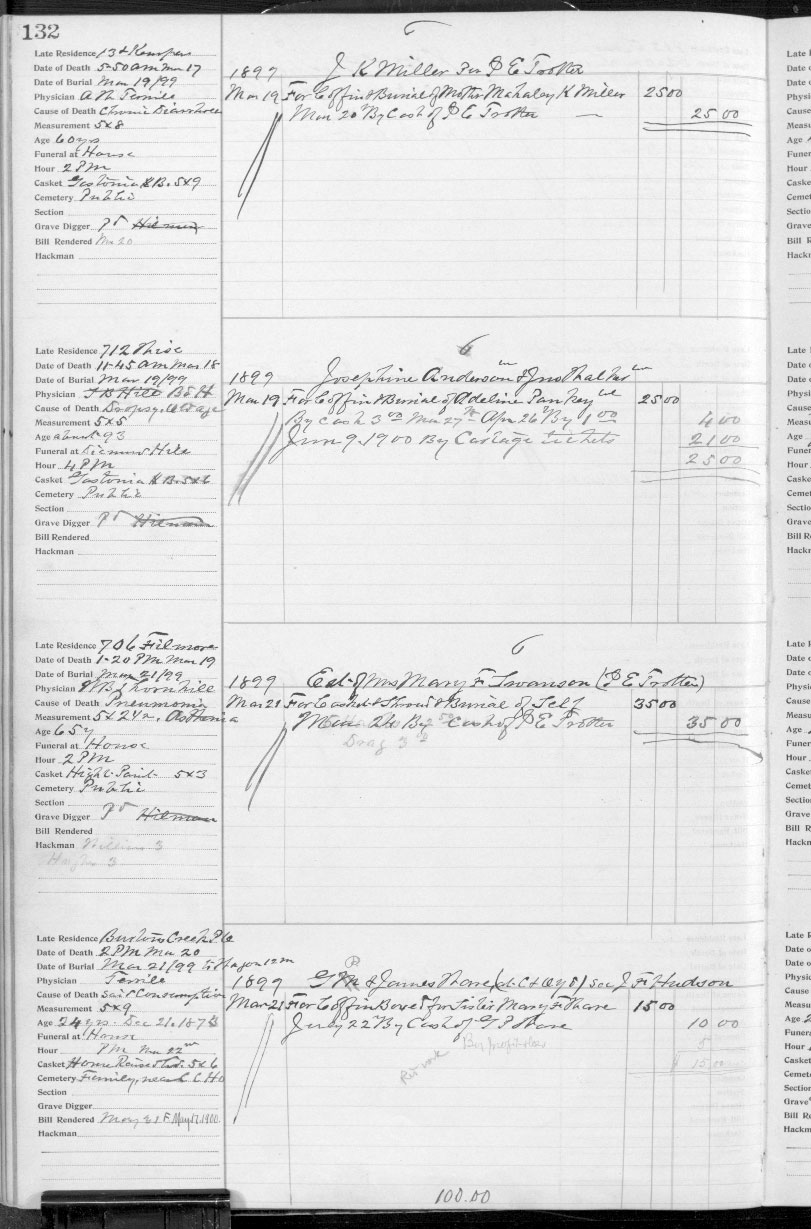 132
Late Residence 13 & Kemper
Date of Death 5-50 am Mar 17
Date of Burial Mar 19/99
Physician A W Terrile
Cause of Death Chronic Diarrhoea
Measurement 5x8
Age 60 yrs
Funeral at House
Hour 2 PM
Casket Gastonia K B. 5x9
Cemetery Public
Section
Grave Digger Pd Hilman
Bill Rendered Mar 20
Hackman
6
1899 J K Miller For P E Trotter
Mar 19 For Coffin & Burial of Mother Mahaley K Miller 25 00
Mar 20 By Cash of P E Trotter 25 00
Late Residence 712 Thise
Date of Death 11-45 am Mar 18
Date of Burial Mar 19/99
Physician J B Hill B of H
Cause of Death Dropsy, Old age
Measurement 5x5
Age about 93
Funeral at Diamond Hill
Hour 4 PM
Casket Gastonia K B. 5x6
Cemetery Public
Section
Grave Digger Pd Hilman
Bill Rendered
Hackman
6
1899 Josephine Anderson & Jno Thal
Mar 19 For Coffin & Burial of Adeline Pankey 25 00
By Cash 3 00 Mar 27 Apr 26 By 1 00 4 00
June 9, 1900 By Cartage tickets 21 00
25 00
Late Residence 706 Filmore
Date of Death 1-20 PM Mar 19
Date of Burial Mar 21/99
Physician W B Thornhill
Cause of Death Pneumonia
Measurement 5x24 Asthenia
Age 65 y
Funeral at House
Hour 2 PM
Casket High Point 5x3
Cemetery Public
Section
Grave Digger Pd Hilman
Bill Rendered
Hackman Williams 3
Hughes 3
6
1899 Est of Mrs Mary F Swanson (P E Trotter)
Mar 21 For Casket & Shroud & Burial of Self 35 00
Mar 24 By Cash of P E Trotter 35 00
Drag 3
Late Residence Burtons Creek Ple
Date of Death 2 PM Mar 20
Date of Burial Mar 21/99 Wagon 12 m
Physician Terrile
Cause of Death said Consumption
Measurement 5x9
Age 24 yrs. Dec 21, 1873
Funeral at House
Hour PM Mar 22nd
Casket Home Raised 5x6
Cemetery Family, near C Ho
Section
Grave Digger
Bill Rendered May May 17, 1900
Hackman
1899 G P & James Thare J F Hudson
Mar 21 For Coffin Box & for Sister Mary F Thare 15 00
July 22 By Cash of G P Thare 10 00
By profit & loss 5
$ 15.00
100.00